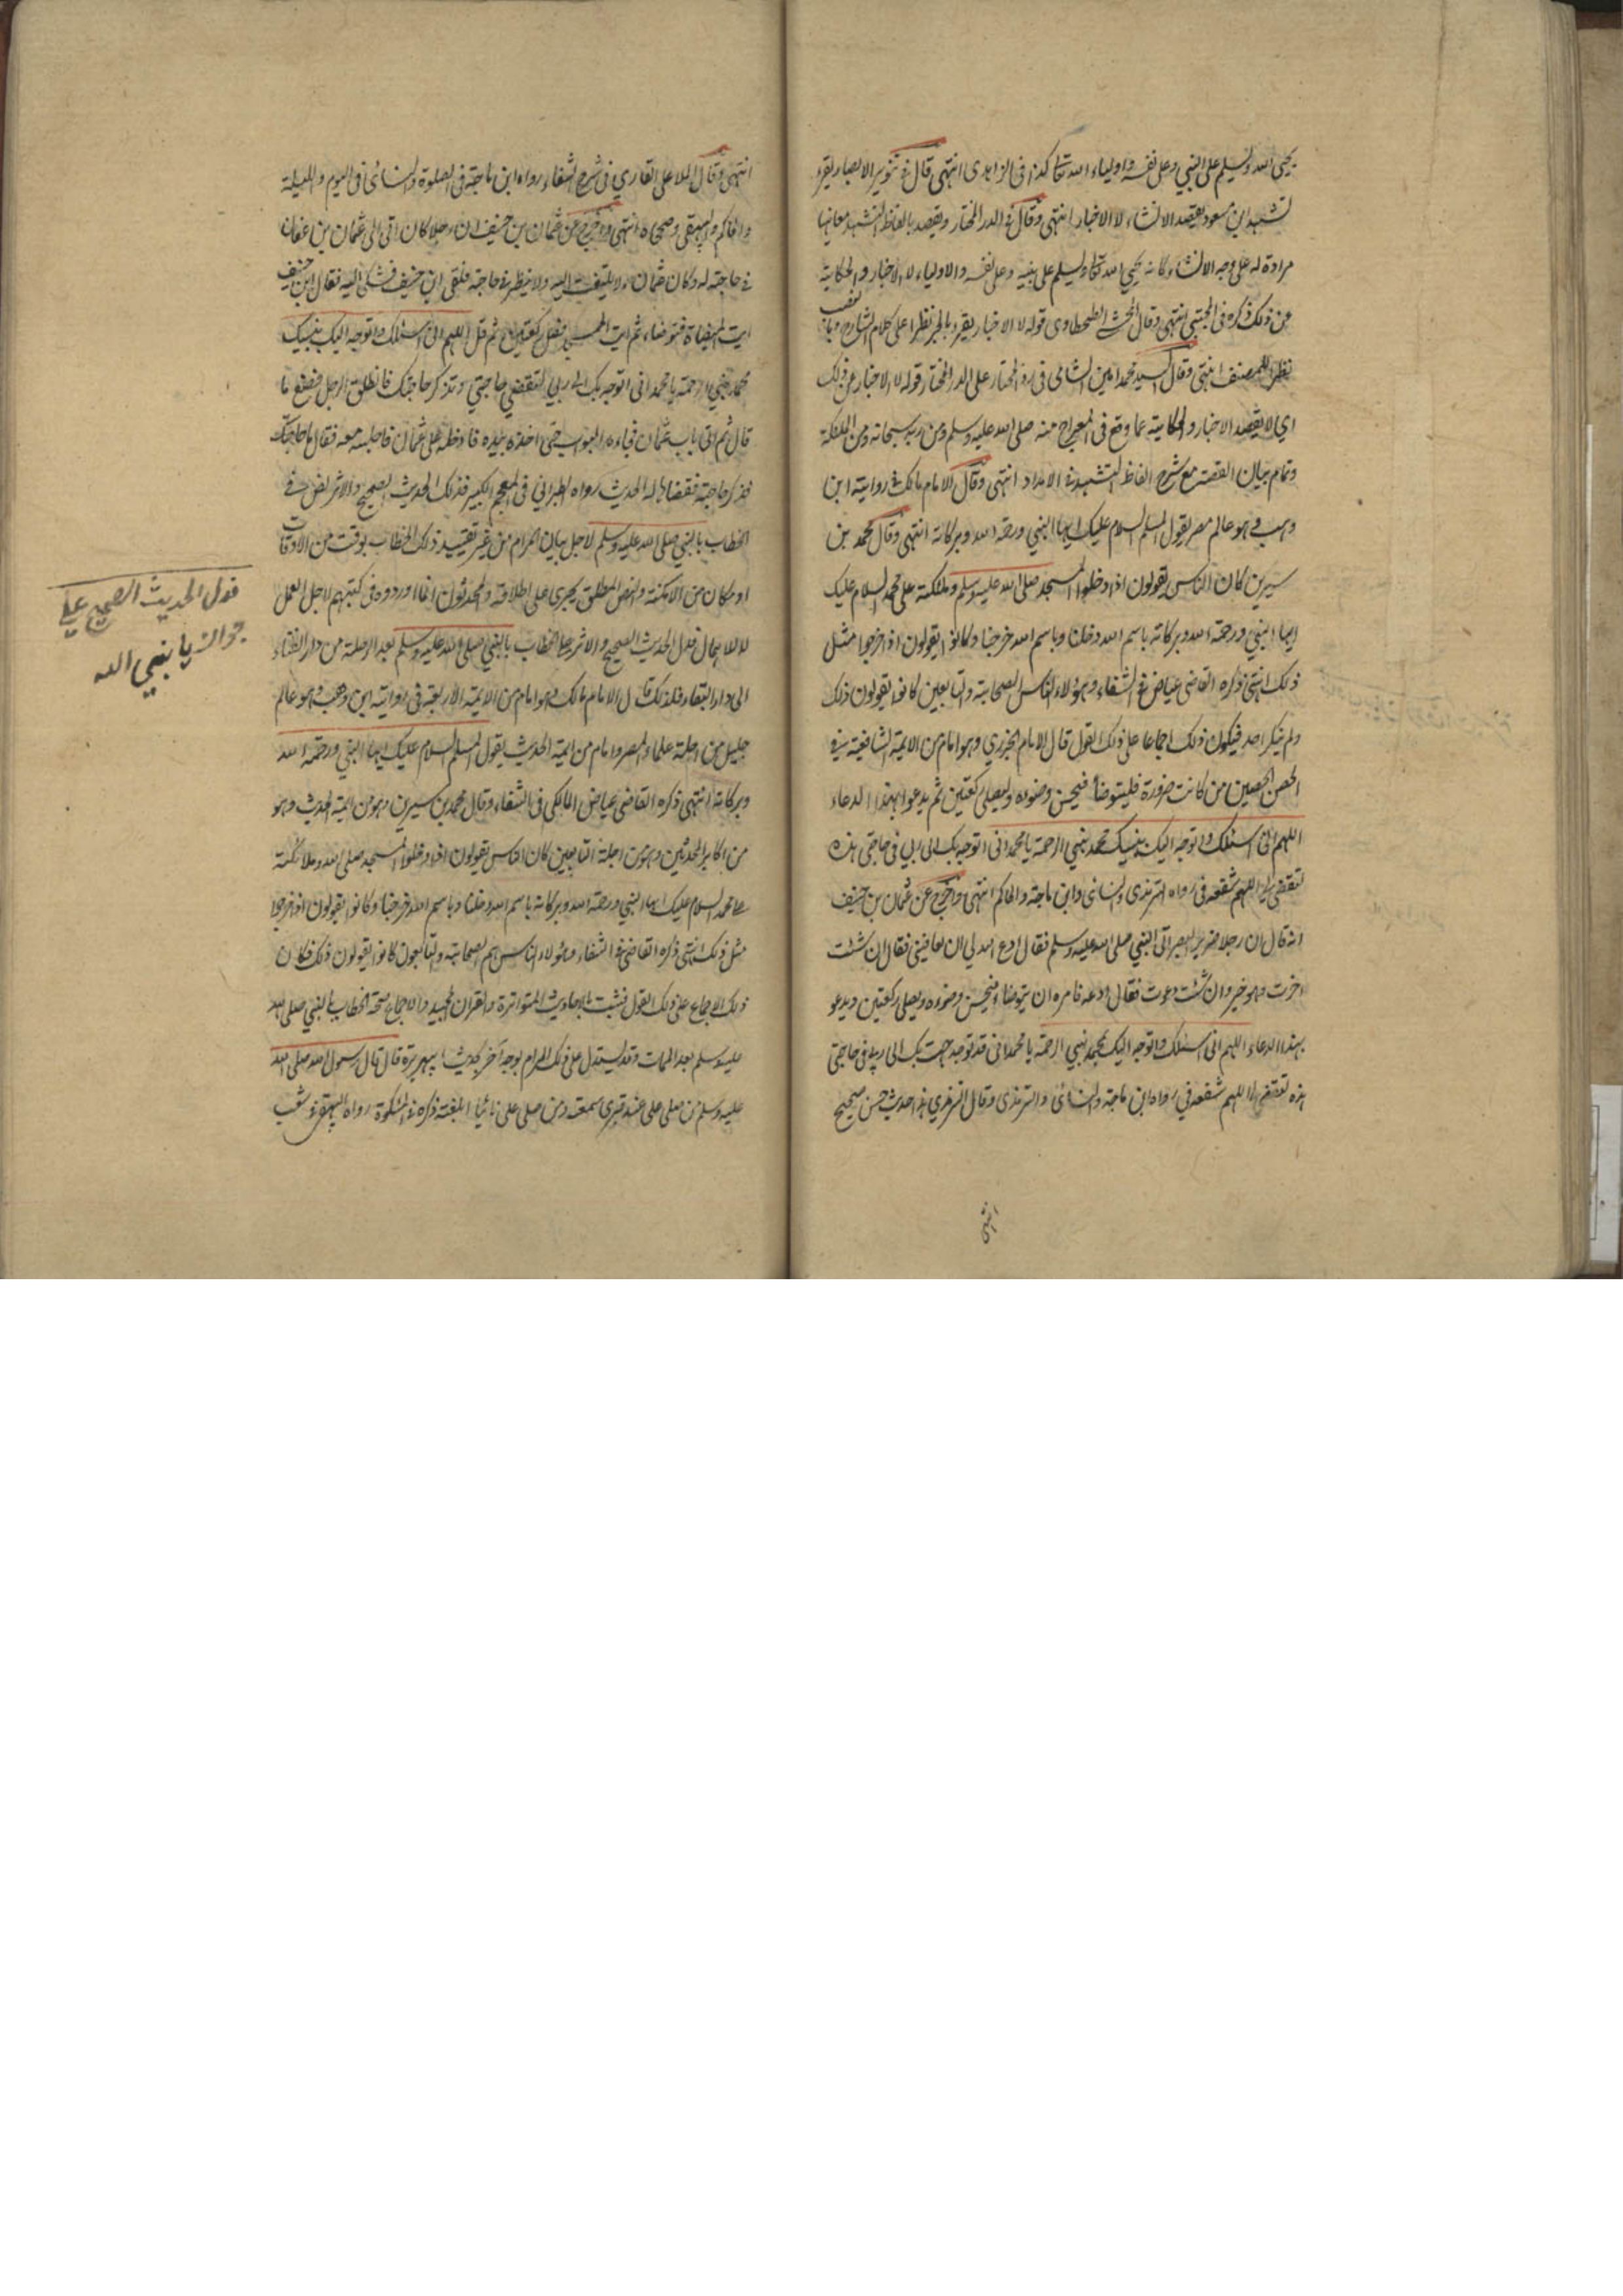 يحيى الله ويسلم على النبي وعلى نفسه واولياء الله تعالى كذا فى الزاهدى انتهى قال فى تنوير الابصار يقرء
تشهد ابن مسعود بقصد الانشاء لا الاخبار انتهى وقال فى الدر المختار ويقصد بالفاظ التشهد معانيها
مرادة له على وجه الانشاء كانه يحيي الله تعالى ويسلم على نبيه وعلى نفسه والاولياء لا الاخبار والحكاية
عن ذلك ذكره فى المجتبى انتهى وقال المحشى الطحطاوى قوله لا الاخبار يقرء بالجر نظرا على كلام الشارح وبالنصب
نظرا للمصنف انتهى وقال السيد محمد امين الشامى فى رد المحتار على الدر المختار قوله لا الاخبار عن ذلك
اي لا يقصد الاخبار والحكاية عما وقع فى المعراج منه صلى الله عليه وسلم ومن ربه سبحانه ومن الملئكة
وتمام بيان القصة مع شرح الفاظ التشهد فى الامداد انتهى وقال الامام مالك فى رواية ابن
وهب وهو عالم مصر يقول المسلم السلام عليك ايها النبي ورحمة الله وبركاته انتهى وقال محمد بن
سيرين كان الناس يقولون اذا دخلوا المسجد صلى الله عليه وسلم وملئكته على محمد السلام عليك
ايها النبي ورحمة الله وبركاته باسم الله دخلنا وباسم الله خرجنا وكانوا يقولون اذا خرجوا مثل
ذلك انتهى ذكره القاضى عياض فى الشفاء وهؤلاء الناس الصحابة والتابعين كانوا يقولون ذلك
ولم ينكر احد فيكون ذلك اجماعا على ذلك القول قال الامام الجزري وهو امام من الايمة الشافعية فى
الحصن الحصين من كانت ضرورة فليتوضأ فيحسن وضوءه وليصلى ركعتين ثم يدعوا بهذا الدعاء
اللهم انى اسئلك واتوجه اليك بنبيك محمد نبي الرحمة يا محمد انى اتوجه بك الى ربي فى حاجتى هذه
لتقضى لى اللهم شفعه فى رواه الترمذى والنسائى وابن ماجة والحاكم انتهى واخرج عن عثمان بن حنيف
انه قال ان رجلا ضرير البصر اتى النبي صلى الله عليه وسلم فقال ادع الله لي ان يعافينى فقال ان شئت
اخرت وهو خير وان شئت دعوت فقال ادعه فامره ان يتوضاء فيحسن وضوءه ويصلى ركعتين ويدعو
بهذا الدعاء اللهم انى اسئلك واتوجه اليك بمحمد نبي الرحمة يا محمد انى قد توجهت بك الى ربي فى حاجتى
هذه لتقضى لى اللهم شفعه في رواه ابن ماجة والنسائى والترمذى وقال الترمذي هذا حديث حسن صحيح
انتهى
انتهى وقال الملا على القاري فى شرح الشفاء رواه ابن ماجة فى الصلوة والنسائى فى اليوم والليلة
والحاكم والبيهقى وصححاه انتهى واخرج عن عثمان بن حنيف ان رجلا كان اتى الى عثمان بن عفان
فى حاجة له وكان عثمان لا يلتفت اليه ولا ينظر فى حاجته فلقى ابن حنيف فشكى اليه فقال ابن حنيف
ايت الميضاة فتوضاء ثم ايت المسجد فصل ركعتين ثم قل اللهم انى اسئلك واتوجه اليك بنبيك
محمد نبي الرحمة يا محمد انى اتوجه بك الى ربي لتقضي حاجتي وتذكر حاجتك فانطلق الرجل فصنع ما
قال ثم اتى باب عثمان فجاءه البواب حتى اخذه بيده فادخله على عثمان فاجلسه معه فقال ما حاجتك
فذكر حاجته فقضاها له الحديث رواه الطبرانى فى المعجم الكبير فذلك الحديث الصحيح والاثر نص فى
الخطاب بالنبي صلى الله عليه وسلم لاجل بيان المرام من غير تقييد ذلك الخطاب بوقت من الاوقات
او مكان من الامكنة والنص المطلق يجرى على اطلاقه والمحدثون انما اوردوه فى كتبهم لاجل العمل
لا للاهمال فدل الحديث الصحيح والاثر على الخطاب بالنبي صلى الله عليه وسلم بعد الرحلة من دار الفناء
الى دار البقاء فلذلك قال الامام مالك وهو امام من الايمة الاربعة فى رواية ابن وهب وهو عالم
جليل من اجلة علماء المصر وامام من ايمة الحديث يقول المسلم السلام عليك ايها النبي ورحمة الله
وبركاته انتهى ذكره القاضى عياض المالكى فى الشفاء وقال محمد بن سيرين وهو من ايمة الحديث وهو
من اكابر المحدثين وهو من اجلة التابعين كان الناس يقولون اذا دخلوا المسجد صلى الله وملائكته
على محمد السلام عليك ايها النبي ورحمة الله وبركاته باسم الله دخلنا وباسم الله خرجنا وكانوا يقولون اذا خرجوا
مثل ذلك انتهى ذكره القاضى فى الشفاء وهؤلاء الناس هم الصحابة والتابعون كانوا يقولون ذلك فكان
ذلك الاجماع على ذلك القول فثبت بالاحاديث المتواترة والقران المجيد والاجماع صحة الخطاب بالنبي صلى الله
عليه وسلم بعد الممات وقد يستدل على ذلك المرام بوجه آخر بحديث ابي هريرة قال قال رسول الله صلى الله
عليه وسلم من صلى على عند قبرى سمعته ومن صلى على نائيا ابلغته ذكره فى المشكوة رواه البيهقى فى شعب
قول الحديث الصحيح على
جواز يا نبي الله